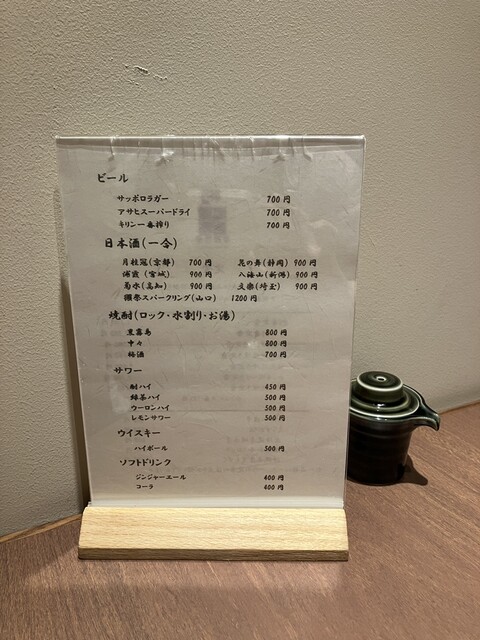 ビール
サッポロラガー 700円
アサヒスーパードライ 700円
キリン一番搾り 700円
日本酒(一合)
月桂冠(京都) 700円 花の舞(静岡) 900円
浦霞(宮城) 900円 八海山(新潟) 900円
菊水(高知) 900円 文楽(埼玉) 900円
獺祭スパークリング(山口) 1200円
焼酎(ロック・水割り・お湯)
黒霧島 800円
中々 800円
梅酒 700円
サワー
酎ハイ 450円
緑茶ハイ 500円
ウーロンハイ 500円
レモンサワー 500円
ウイスキー
ハイボール 500円
ソフトドリンク
ジンジャーエール 400円
コーラ 400円